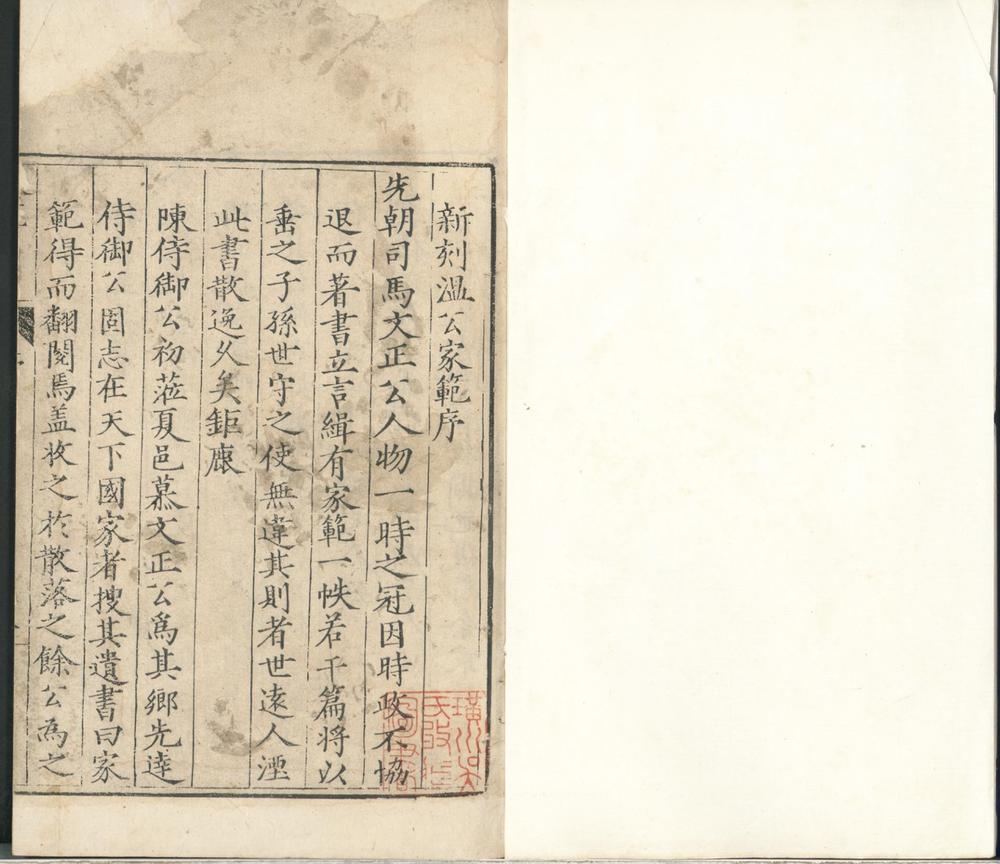 新刻溫公家範序
先朝司馬文正公人物一時之冠因時政不協
退而著書立言緝有家範一帙若干篇將以
垂之子孫世守之使無違其則者世遠人湮
此書散逸久矣鉅鹿
陳侍御公初蒞夏邑慕文正公爲其鄉先達
侍御公固志在天下國家者搜其遺書曰家
範得而翻閱焉盖收之於散落之餘公為之
璜川吳
氏收藏
圖書